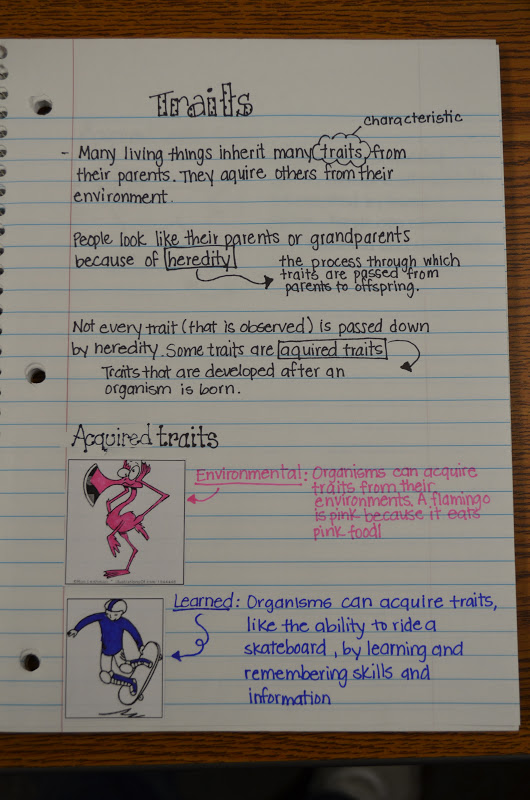 Traits
characteristic
- Many living things inherit many traits from
their parents. They aquire others from their
environment.
People look like their parents or grandparents
because of heredity
the process through which
traits are passed from
parents to offspring.
Not every trait (that is observed) is passed down
by heredity. Some traits are aquired traits
Traits that are developed after an
organism is born.
Acquired traits
Environmental: Organisms can acquire
traits from their
environments. A flamingo
is pink because it eats
pink food!
Learned: Organisms can acquire traits,
like the ability to ride a
skateboard, by learning and
remembering skills and
information